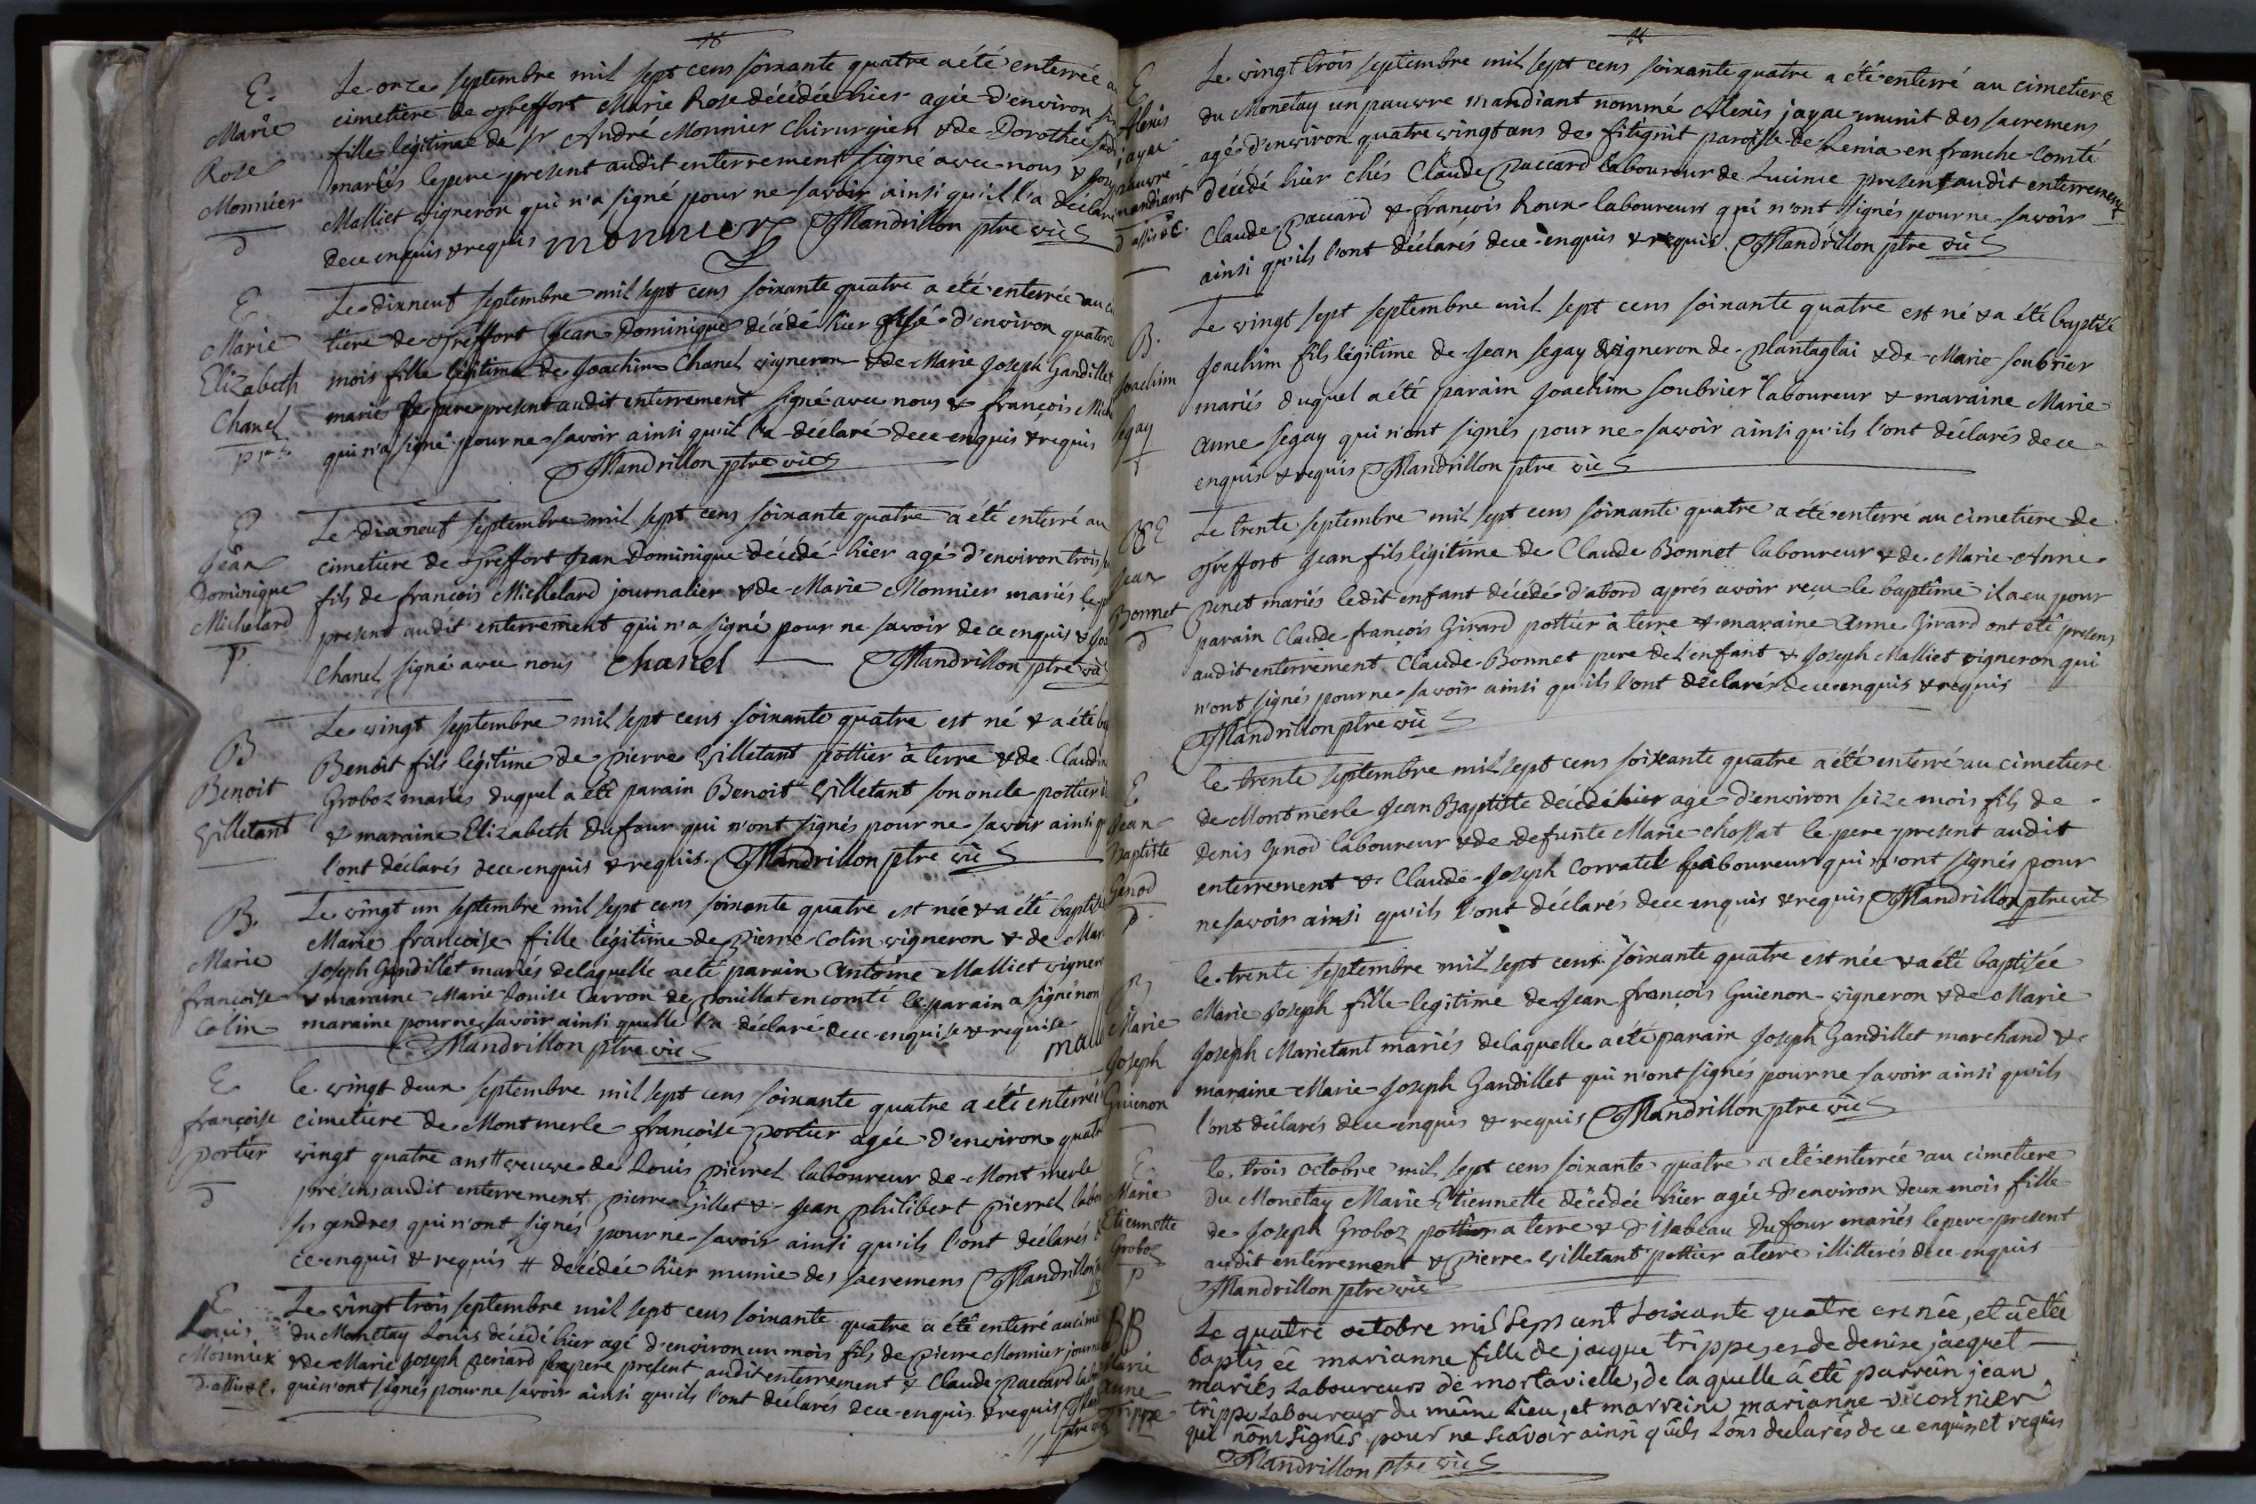 E.
Marie
Rose
Monnier
d
Le onze septembre mil sept cens soixante quatre a été enterrée au
cimetiere de Treffort Marie Rose décédée hier agée d'environ
fille légitime de Sr André Monnier Chirurgien & de Dorothée
mariés le pere present audit enterrement signé avec nous &
Malliet vigneron qui n'a signé pour ne savoir ainsi qu'il l'a déclaré
de ce enquis & requis monnier Mandrillon ptre vic
E
Marie
Elizabeth
Chanel
Le dix neuf septembre mil sept cens soixante quatre a été enterrée au
tiere de Treffort Jean Dominique décédé hier agé d'environ quatorze
mois fille légitime de Joachim Chanel vigneron & de Marie Joseph Gandillet
mariés le pere present audit enterrement signé avec nous & françois Mich
qui n'a signé pour ne savoir ainsi qu'il l'a déclaré de ce enquis & requis
Mandrillon ptre vic
E
Jean
Dominique
Michelard
P.
Le dix neuf septembre mil sept cens soixante quatre a été enterré au
cimetiere de Treffort Jean Dominique décédé hier agé d'environ trois
fils de françois Michelard journalier & de Marie Monnier mariés le
present audit enterrement qui n'a signé pour ne savoir de ce enquis &
Chanel signé avec nous Chanel Mandrillon ptre vic
B
Benoit
Villetant
Le vingt septembre mil sept cens soixante quatre est né & a été
Benoit fils légitime de Pierre Villetant pottier à terre & de Claudine
Groboz mariés duquel a été parain Benoit Villetant son oncle pottier
& maraine Elizabeth Dufour qui n'ont signés pour ne savoir ainsi
l'ont déclarés de ce enquis & requis. Mandrillon ptre vic
B.
Marie
françoise
Colin
Le vingt un septembre mil sept cens soixante quatre est née & a été baptisée
Marie françoise fille légitime de Pierre Colin vigneron & de Marie
Joseph Gandillet mariés de laquelle a été parain Antoine Malliet vigneron
& maraine Marie Louise Carron de Pouillat en comté le parain a signé non
maraine pour ne savoir ainsi quelle l'a déclaré de ce enquise & requise
Mandrillon ptre vic
E
françoise
Portier
d
Le vingt deux septembre mil sept cens soixante quatre a été enterrée
cimetiere de Montmerle françoise Portier agée d'environ quatre
vingt quatre ans # veuve de Louis Pierrel laboureur de Montmerle
présens audit enterrement Pierre Gillet & Jean Philibert Pierrel
ses gendres qui n'ont signés pour ne savoir ainsi qu'ils l'ont déclarés
ce enquis & requis # décédée hier munie des sacremens Mandrillon
E
Louis
Monnier
Le vingt trois septembre mil sept cens soixante quatre a été enterré au
du Monetay Louis décédé hier agé d'environ un mois fils de Pierre Monnier
& de Marie Joseph Periard le pere present audit enterrement & Claude Paccard
qui n'ont signés pour ne savoir ainsi qu'ils l'ont déclarés de ce enquis & requis
E
Alexis
jayac
pauvre
mandiant
Le vingt trois septembre mil sept cens soixante quatre a été enterré au cimetiere
du Monetay un pauvre mandiant nommé Alexis jayac munit des sacremens
agé d'environ quatre vingt ans de fitignit paroisse de Lenia en franche comté
décédé hier chés Claude Paccard laboureur de Lucinie present audit enterrement
Claude Paccard & françois Roux laboureurs qui n'ont signés pour ne savoir
ainsi qu'ils l'ont déclarés de ce enquis & requis. Mandrillon ptre vic
B.
Joachim
Segay
Le vingt sept septembre mil sept cens soixante quatre est né & a été baptisé
Joachim fils légitime de Jean Segay vigneron de Plantaglai & de Marie Soubrier
mariés duquel a été parain Joachim Soubrier laboureur & maraine Marie
Anne Segay qui n'ont signés pour ne savoir ainsi qu'ils l'ont déclarés de ce
enquis & requis Mandrillon ptre vic
B & E
Jean
Bonnet
d
Le trente septembre mil sept cens soixante quatre a été enterré au cimetiere de
Treffort Jean fils légitime de Claude Bonnet laboureur & de Marie Anne
Penet mariés ledit enfant décédé d'abord aprés avoir reçu le baptême il a eu pour
parain Claude françois Girard pottier à terre & maraine Anne Girard ont été présens
audit enterrement Claude Bonnet pere de l'enfant & Joseph Malliet vigneron qui
n'ont signés pour ne savoir ainsi qu'ils l'ont déclarés de ce enquis & requis
Mandrillon ptre vic
E
Jean
Baptiste
Genod
P.
le trente septembre mil sept cens soixante quatre a été enterré au cimetiere
de Montmerle Jean Baptiste décédé hier agé d'environ seize mois fils de
Denis Genod laboureur & de defunte Marie Chossat le pere present audit
enterrement & Claude Joseph Corratel laboureur qui n'ont signés pour
ne savoir ainsi qu'ils l'ont déclarés de ce enquis & requis Mandrillon ptre vic
B
Marie
Joseph
Guienon
le trente septembre mil sept cens soixante quatre est née & a été baptisée
Marie Joseph fille legitime de Jean françois Guienon vigneron & de Marie
Joseph Marietant mariés de laquelle a été parain Joseph Gandillet marchand &
maraine Marie Joseph Gandillet qui n'ont signés pour ne savoir ainsi qu'ils
l'ont déclarés de ce enquis & requis Mandrillon ptre vic
E.
Marie
Etiennette
Groboz
P
le trois octobre mil sept cens soixante quatre a été enterrée au cimetiere
du Monetay Marie Etiennette décédée hier agée d'environ deux mois fille
de Joseph Groboz pottier a terre & d'isabeau Dufour mariés le pere present
audit enterrement & Pierre Villetant pottier a terre illitterés de ce enquis
Mandrillon ptre vic
B
Marie
anne
Trippe
Le quatre octobre mil sept cent soixante quatre est née, et a étée
baptisée marianne fille de jacque trippe, et de denise jacquet
mariés Laboureurs de mortavielle, de la quelle a été parrein jean
trippe Laboureur du même Lieu, et marreine marianne vicornier
qui n'ont signés pour ne sçavoir ainsi qu'ils l'ons declarés de ce enquis et requis
Mandrillon ptre vic